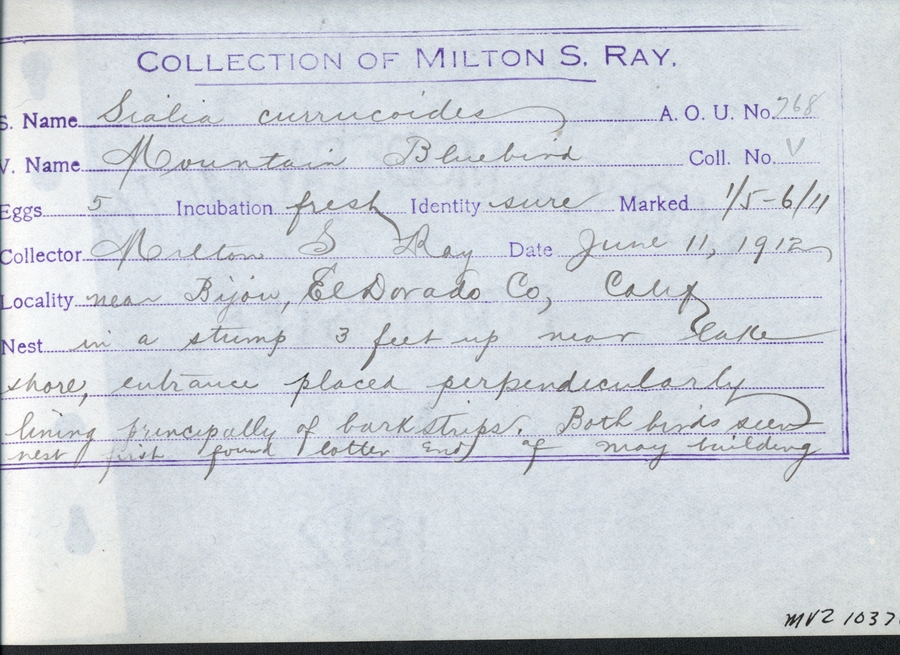 COLLECTION OF MILTON S. RAY.
S. Name Sialia currucoides A. O. U. No. 768
V. Name Mountain Bluebird Coll. No. V
Eggs 5 Incubation fresh Identity sure Marked 1/5-6/11
Collector Milton S Ray Date June 11, 1912
Locality near Bijou, El Dorado Co, Calif
Nest in a stump 3 feet up near lake
shore, entrance placed perpendicularly
lining principally of bark strips. Both birds seen
nest first found latter end of may building
MVZ 1037